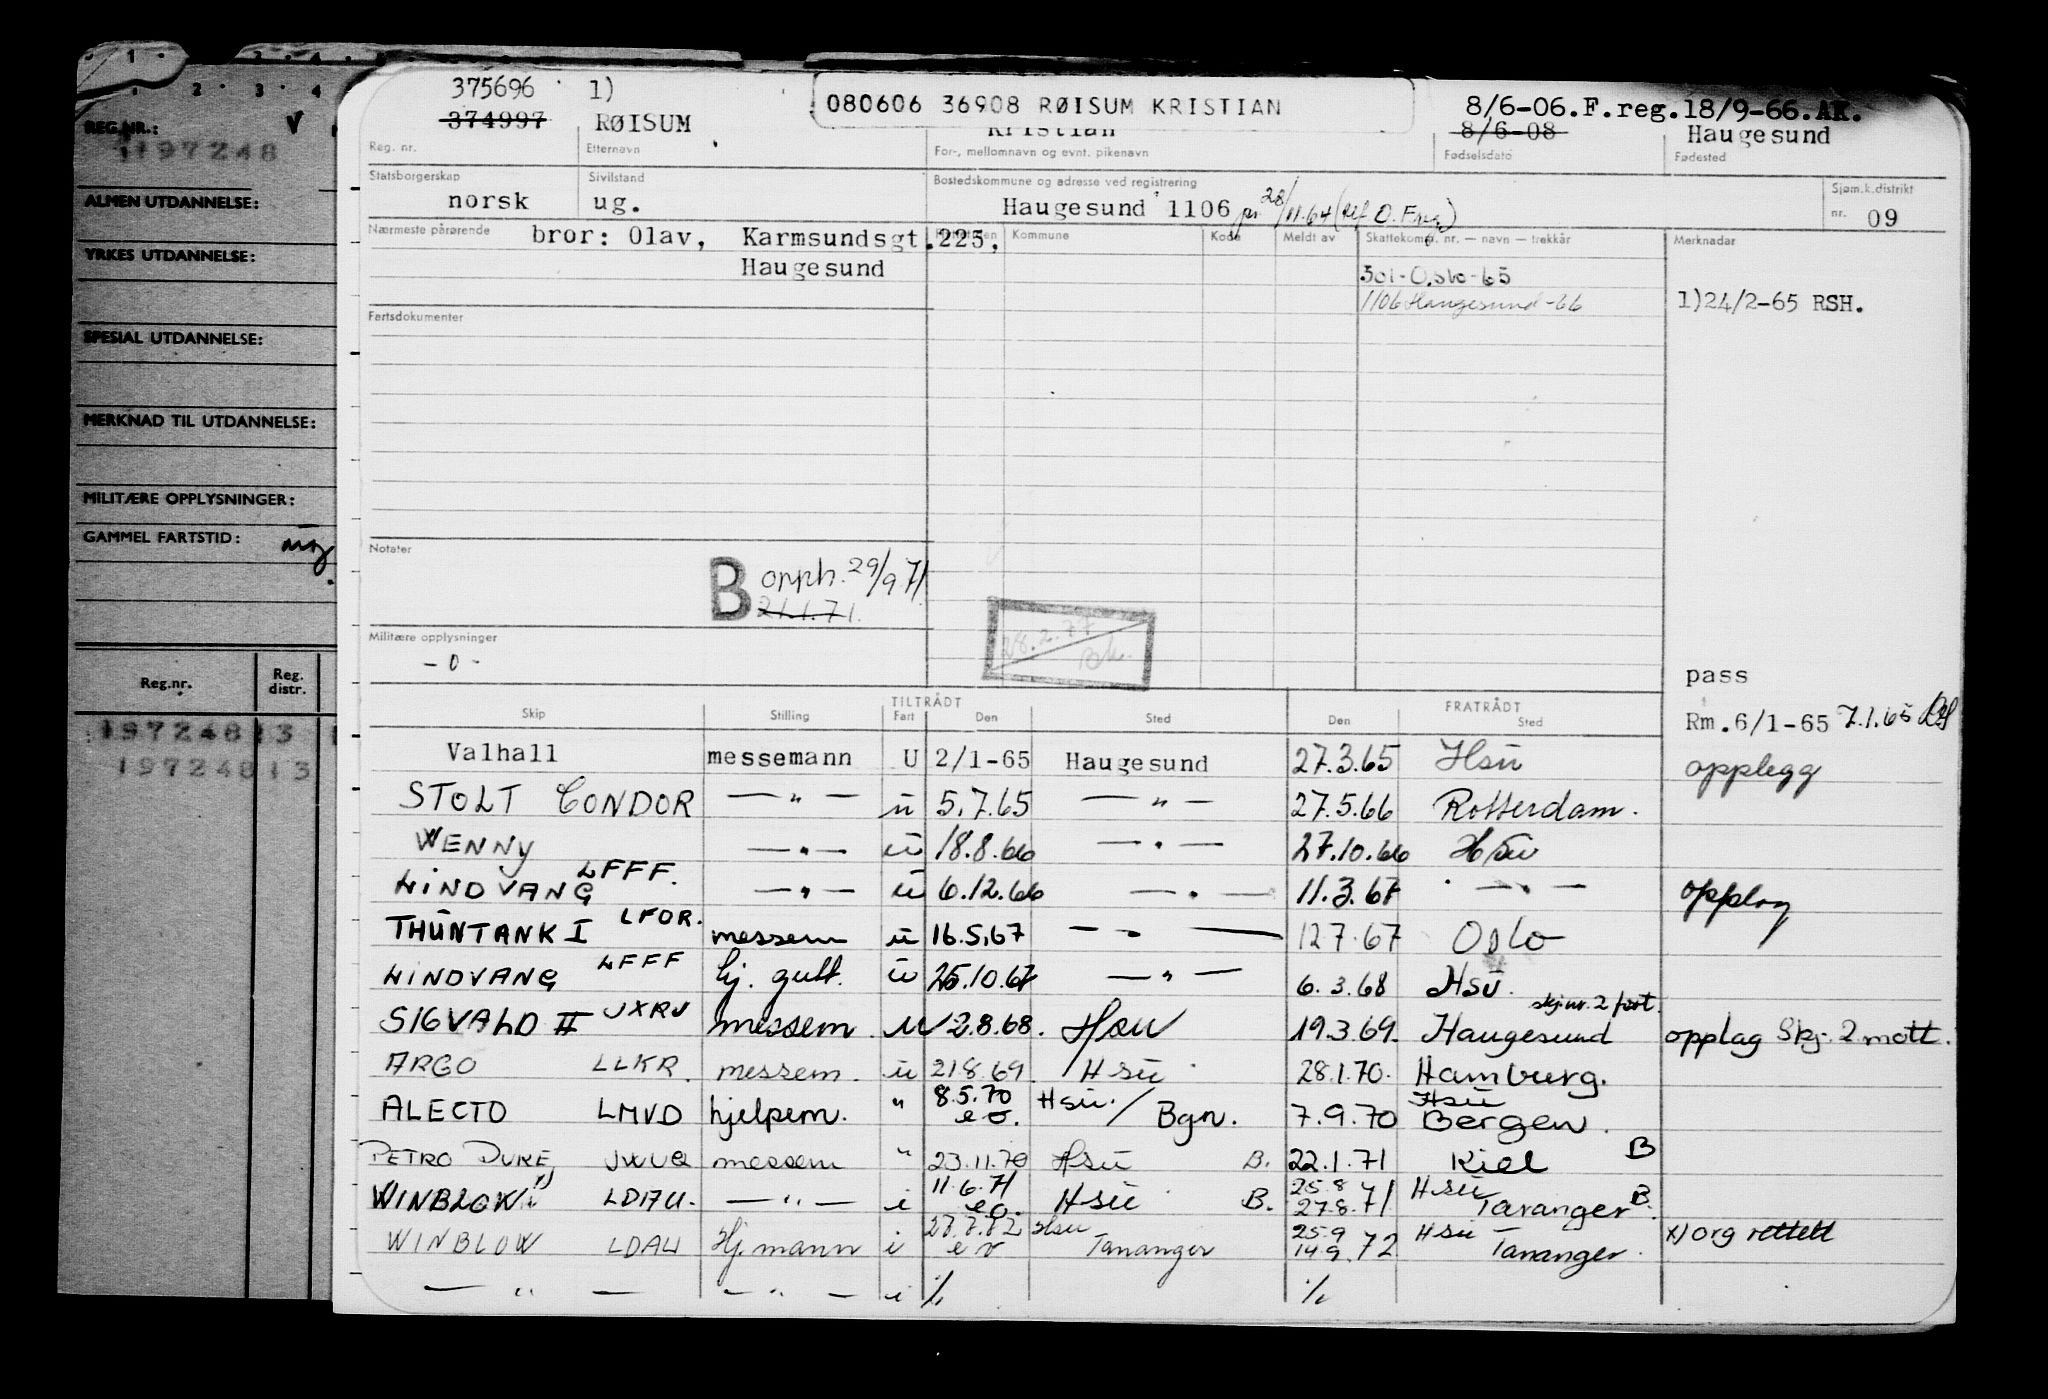 REG.NR.: V
1197248
ALMEN UTDANNELSE:
YRKES UTDANNELSE:
SPESIAL UTDANNELSE:
MERKNAD TIL UTDANNELSE:
MILITÆRE OPPLYSNINGER:
GAMMEL FARTSTID:
Reg.nr. Reg. distr.
19724813
19724813
375696 1)
374997 RØISUM
080606 36908 RØISUM KRISTIAN
Kristian
8/6-06.F.reg.18/9-66.AK.
8/6-08 Haugesund
Reg. nr. Etternavn For-, mellomnavn og evnt. pikenavn Fødselsdato Fødested
Statsborgerskap Sivilstand Bostedskommune og adresse ved registrering Sjøm.k.distrikt
norsk ug. Haugesund 1106 pr. 28/11.64 (ref. O. F.reg.) nr. 09
Nærmeste pårørende bror: Olav, Karmsundsgt.225, Kommune Kode Meldt av Skattekom. nr. — navn — trekkår Merknader
Haugesund
301-Oslo-65
1106 Haugesund-66 1)24/2-65 RSH.
Fartsdokumenter
Notater
B opph. 29/9 71
21.1.71.
28.2.77
Militære opplysninger
-0-
pass
Rm.6/1-65 7.1.65
TILTRÅDT FRATRÅDT
Skip Stilling Fart Den Sted Den Sted
Valhall messemann U 2/1-65 Haugesund 27.3.65 Hsu opplegg
STOLT CONDOR — " — u 5.7.65 — " — 27.5.66 Rotterdam.
WENNY — " — u 18.8.66 — " — 27.10.66 Hsu
LINDVANG LFFF. — " — u 6.12.66 — " — 11.3.67 — " — opplag
THUNTANK I LFOR. messem u 16.5.67 — " — 12.7.67 Oslo
LINDVANG LFFF hj. gutt. u 25.10.67 — " — 6.3.68 Hsu.
skj.nr. 2 fort.
SIGVALD II JXRV messem. u 2.8.68. Hsu 19.3.69. Haugesund opplag Skj. 2 mott.
ARGO LLKR. messem. u 21.8.69. Hsu 28.1.70. Hamburg.
ALECTO LMVD hjelpem. " 8.5.70 e o. Hsu. / Bgn. 7.9.70 Hsu Bergen.
PETRO DUKE JWUQ messem " 23.11.70 Hsu B. 22.1.71 Kiel B
WINBLOW LDAU. — " — i 11.6.71 e o. Hsu B. 25.8 27.8.71 Hsu Tananger B.
WINBLOW LDAU Hj.mann i e o Hsu Tananger 25.9 14.9.72 Hsu Tananger. x) org rettett
— " — — " — i % %